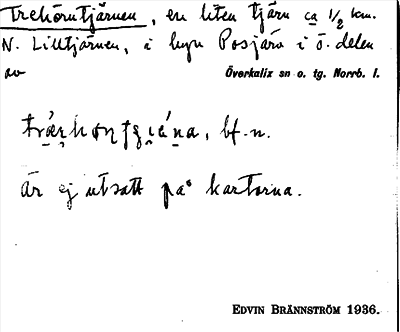 Trehörntjärnen, en liten tjärn ca 1/2 km.
N. Lilltjärnen, i byn Posjärv i ö. delen
av Överkalix sn o. tg. Norrb. l.
bf. n.
Är ej utsatt på kartorna.
EDVIN BRÄNNSTRÖM 1936.